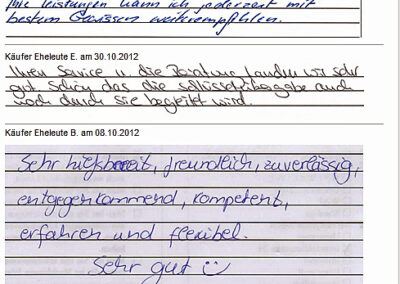 Ihre Leistungen kann ich jederzeit mit
bestem Gewissen weiterempfehlen.
Käufer Eheleute E. am 30.10.2012
Ihren Service u. die Beratung fanden wir sehr
gut. Schön das die Schlüsselübergabe auch
noch durch sie begleitet wird.
Käufer Eheleute B. am 08.10.2012
Sehr hilfsbereit, freundlich, zuverlässig,
entgegenkommend, kompetent,
erfahren und flexibel.
Sehr gut ☺